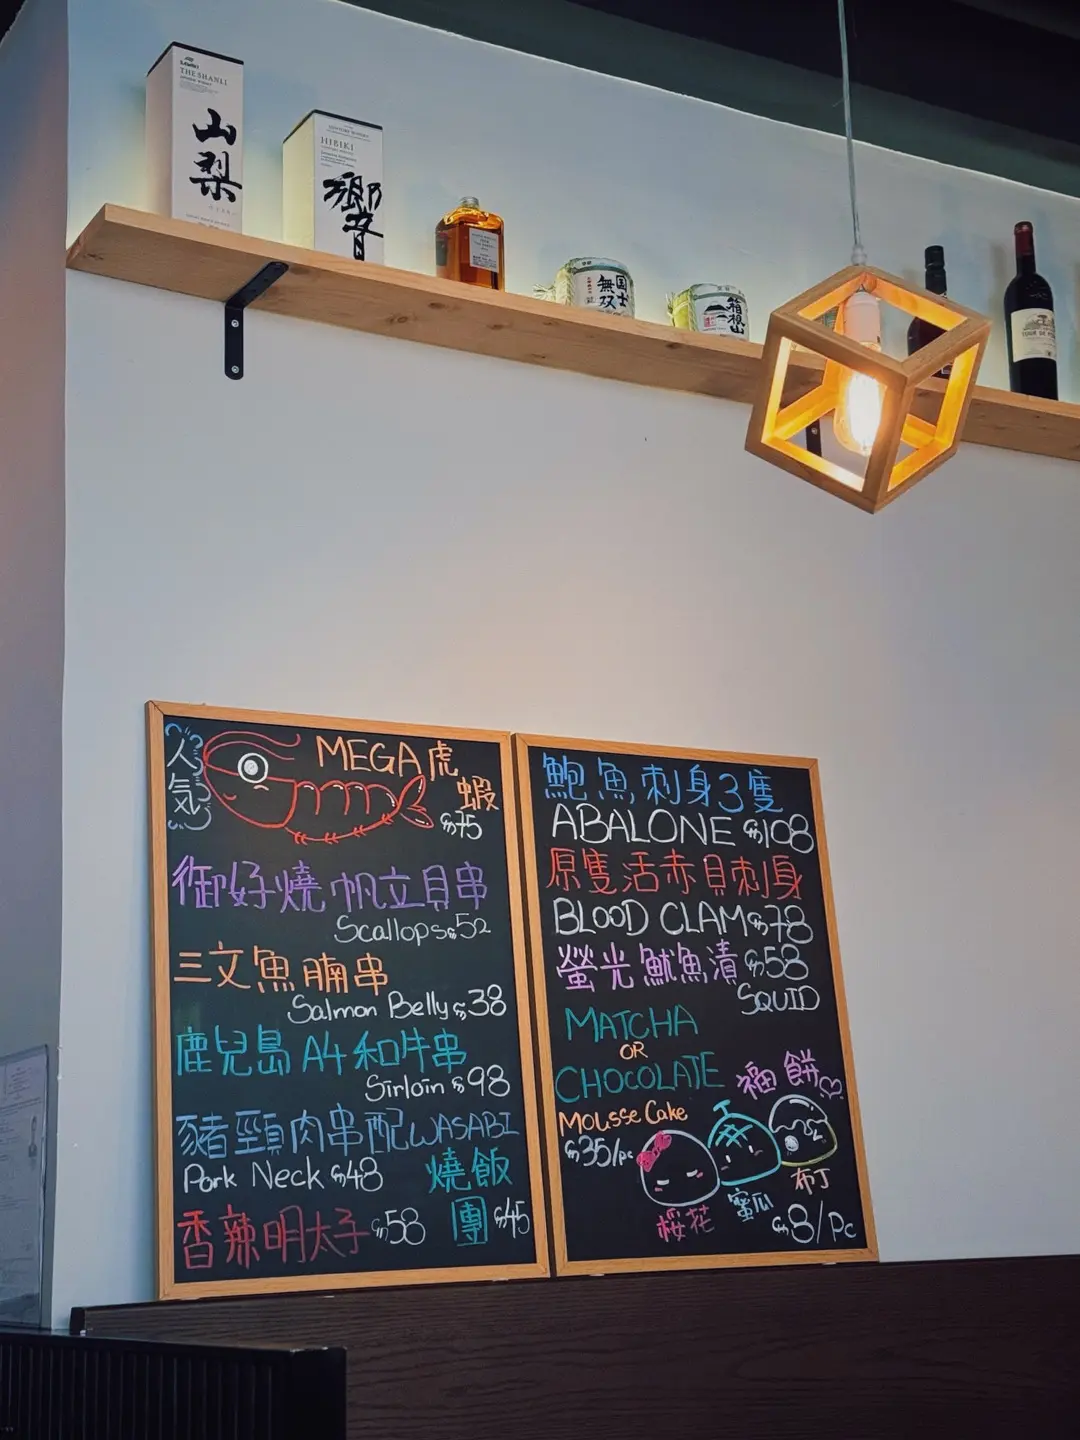 THE SHANLI
山梨
HIBIKI
響
国士
無双
箱根山
人気
MEGA虎
蝦
$75
御好燒帆立貝串
Scallops $52
三文魚腩串
Salmon Belly $38
鹿兒島A4和牛串
Sirloin $98
豬頸肉串配WASABI
Pork Neck $48
燒飯
團 $45
香辣明太子 $58
鮑魚刺身3隻
ABALONE $108
原隻活赤貝刺身
BLOOD CLAM $78
螢光魷魚漬 $58
SQUID
MATCHA
OR
CHOCOLATE
Mousse Cake
$35/pc
福餅
桜花
蜜瓜
布丁
$8/Pc